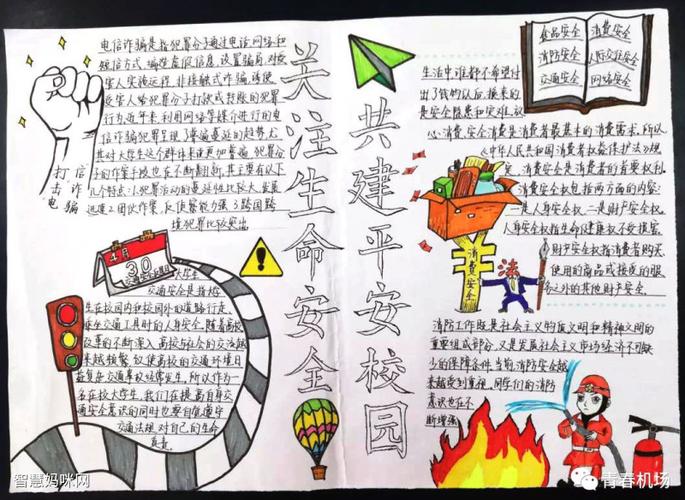 电信诈骗是指犯罪分子通过电话、网络和
短信方式,编造虚假信息,设置骗局,对受
害人实施远程、非接触式诈骗,诱使
受害人给犯罪分子打款或转账的犯罪
行为,近年来,利用网络等媒介进行的电
信诈骗犯罪呈现了普遍蔓延的趋势,尤
其对大学生这个群体来说更加普遍,犯罪分
子的作案手段也在不断翻新,其主要有以下
几个特点:1.犯罪活动的蔓延性比较大,发展
迅速2.团伙作案,反侦察能力强 3.跨国跨
境犯罪比较突出
打击
电信
诈骗
关注生命安全
共建平安校园
4月
30
大学生
交通安全是指大学
生在校园内和校园外的道路行走、
乘坐交通工具时的人身安全,随着高校
改革的不断深入,高校与社会的交流越
来越频繁,致使高校的交通环境日
益复杂,交通事故经常发生,所以作为一
名在校大学生,我们在提高自身交
通安全意识的同时也要自觉遵守
交通法规,对自己的生命
负责
食品安全
消防安全
交通安全
消费安全
人际交往安全
网络安全
生活中谁都不希望付
出了钱物以后,换来的
是安全隐患和灾难,认
心.消费安全是消费者最基本的消费需求,所以
《中华人民共和国消费者权益保护法》规
定,消费安全是消费者的首要权利
消费安全权包括两方面的内容:
一是人身安全权,二是财产安全权。
人身安全权指生命健康权不受损害,
财产安全权指消费者购买、
使用的商品或接受的服
务之外的其他财产安全.
消费安全
法
消防工作既是社会主义物质文明和精神文明的
重要组成部分,又是发展社会主义市场经济不可缺
少的保障条件,当前,消防安全越
来越受到重视,同学们的消防
意识也在不
断增强
智慧妈咪网
青春机场